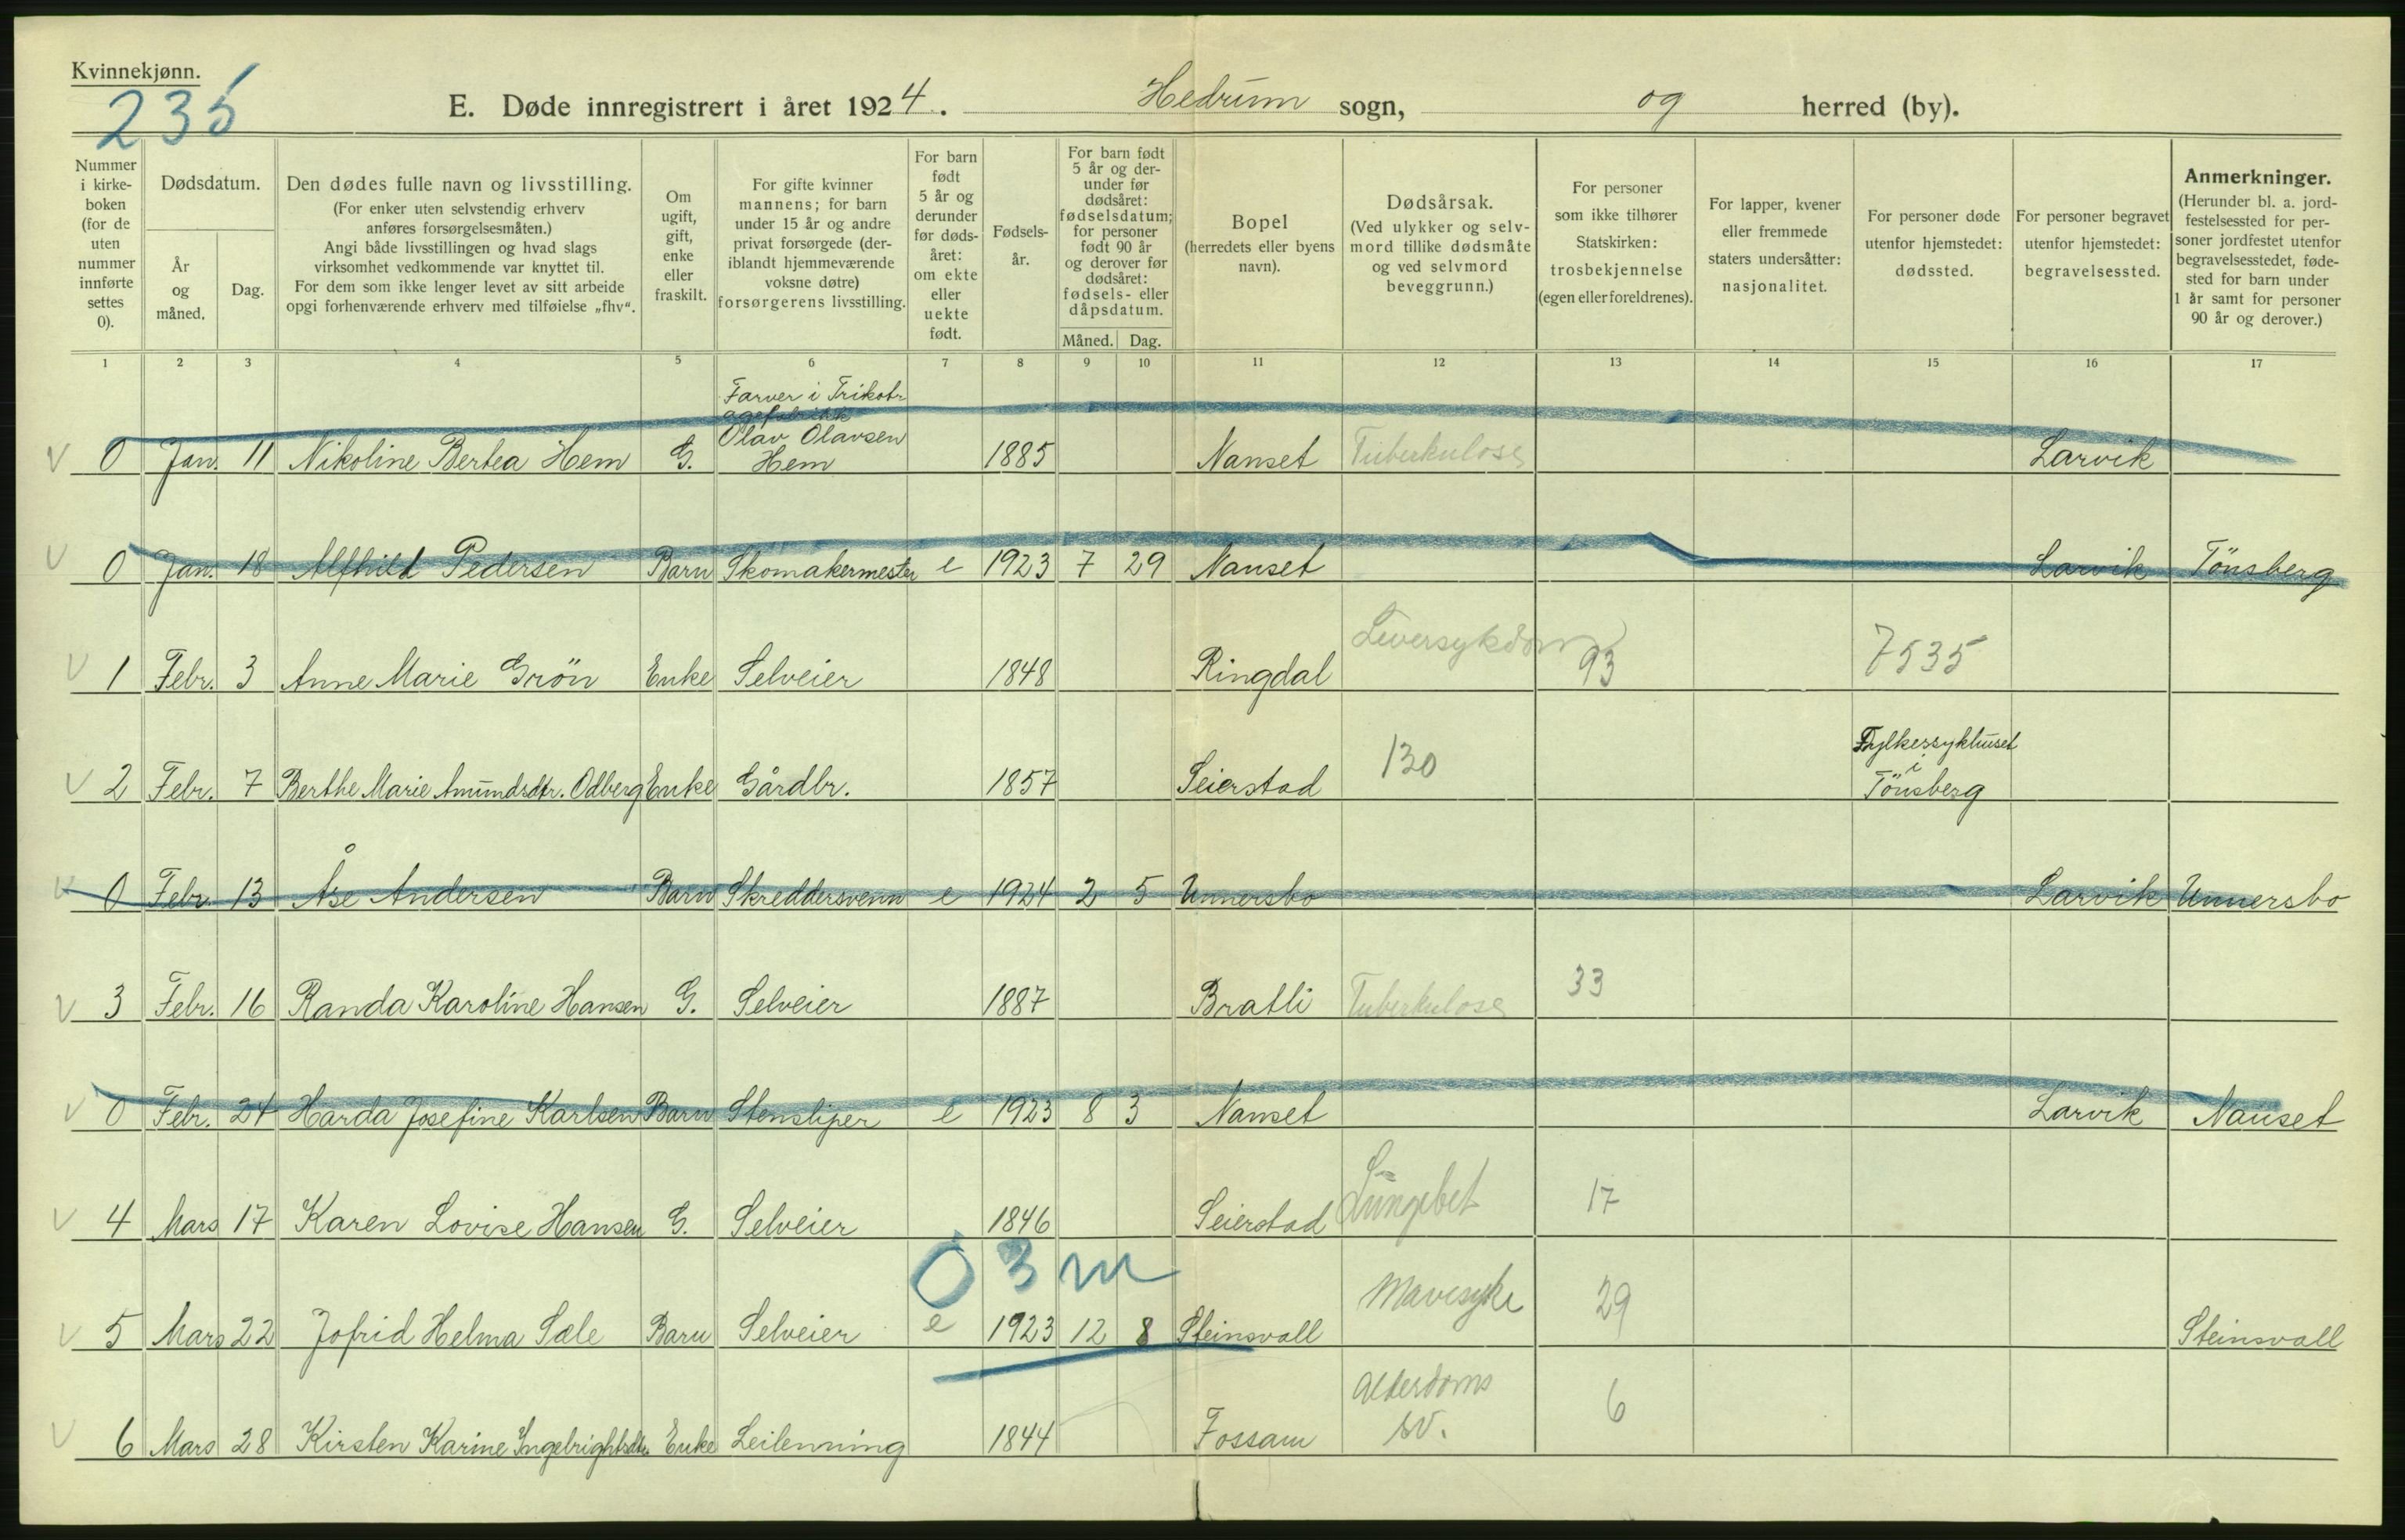 Kvinnekjønn.
235
E. Døde innregistrert i året 1924. Hedrum sogn, og herred (by).
Nummer i kirke-boken (for de uten nummer innførte settes 0).
Dødsdatum.
År og måned.
Dag.
Den dødes fulle navn og livsstilling.
(For enker uten selvstendig erhverv anføres forsørgelsesmåten.)
Angi både livsstillingen og hvad slags virksomhet vedkommende var knyttet til.
For dem som ikke lenger levet av sitt arbeide opgi forhenværende erhverv med tilføielse „fhv“.
Om ugift, gift, enke eller fraskilt.
For gifte kvinner mannens; for barn under 15 år og andre privat forsørgede (der-iblandt hjemmeværende voksne døtre) forsørgerens livsstilling.
For barn født 5 år og derunder før døds-året: om ekte eller uekte født.
Fødsels-år.
For barn født 5 år og der-under før dødsåret: fødselsdatum; for personer født 90 år og derover før dødsåret: fødsels- eller dåpsdatum.
Måned. Dag.
Bopel
(herredets eller byens navn).
Dødsårsak.
(Ved ulykker og selv-mord tillike dødsmåte og ved selvmord beveggrunn.)
For personer som ikke tilhører Statskirken: trosbekjennelse (egen eller foreldrenes).
For lapper, kvener eller fremmede staters undersåtter: nasjonalitet.
For personer døde utenfor hjemstedet: dødssted.
For personer begravet utenfor hjemstedet: begravelsessted.
Anmerkninger.
(Herunder bl. a. jord-festelsessted for per-soner jordfestet utenfor begravelsesstedet, føde-sted for barn under 1 år samt for personer 90 år og derover.)
1 2 3 4 5 6 7 8 9 10 11 12 13 14 15 16 17
Farver i Trikot-
agefabrikk
Olav Olavsen
V 0 Jan. 11 Nikoline Bertea Hem G. Hem 1885 Nanset Tuberkulose Larvik
V 0 Jan. 18 Alfhild Pedersen Barn Skomakermester e 1923 7 29 Nanset Larvik Tönsberg
V 1 Febr. 3 Anne Marie Grön Enke Selveier 1848 Ringdal Leversykdom 93 7535
V 2 Febr. 7 Berthe Marie Amundsdtr. Odberg Enke Gårdbr. 1857 Seierstad 130 Fylkessykhuset i Tönsberg
V 0 Febr. 13 Åse Andersen Barn Skreddersvenn e 1924 2 5 Unnersbo Larvik Unnersbo
V 3 Febr. 16 Randa Karoline Hansen G. Selveier 1887 Bratli Tuberkulose 33
V 0 Febr. 24 Harda Josefine Karlsen Barn Stensliper e 1923 8 3 Nanset Larvik Nanset
V 4 Mars 17 Karen Lovise Hansen G. Selveier 1846 Seierstad Lungebet 17
0 3 m
V 5 Mars 22 Jofrid Helma Sæle Barn Selveier e 1923 12 8 Steinsvall Mavesyke 29 Steinsvall
V 6 Mars 28 Kirsten Karine Ingebrightsdtr. Enke Leilenning 1844 Fossam Alderdoms sv. 6